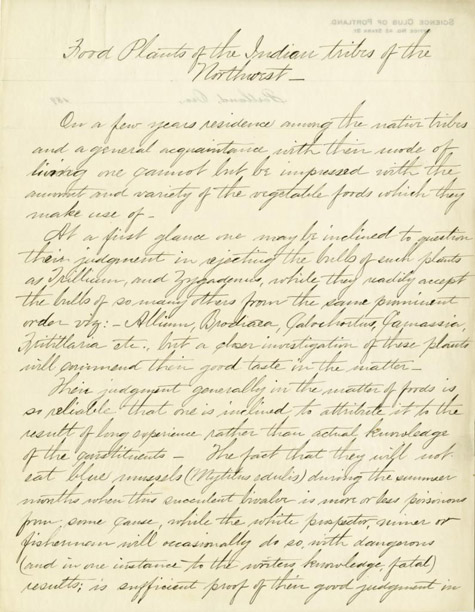 SCIENCE CLUB OF PORTLAND
Food Plants of the Indian tribes of the
Northwest —
On a few years residence among the native tribes
and a general acquaintance with their mode of
living one cannot but be impressed with the
amount and variety of the vegetable foods which they
make use of —
At a first glance one may be inclined to question
their judgment in rejecting the bulbs of such plants
as Trillium, and Zygadenus, while they readily accept
the bulbs of so many others from the same prominent
order viz: – Allium, Brodiaea, Calochortus, Camassia,
Fritillaria etc., but a closer investigation of these plants
will commend their good taste in the matter —
Their judgment generally in the matter of foods is
so reliable that one is inclined to attribute it to the
result of long experience rather than actual knowledge
of the constituents — The fact that they will not
eat blue mussels (Mytilus edulis) during the summer
months when this succulent bivalve is more or less poisonous
from, some cause, while the white prospector, miner or
fisherman will occasionally do so, with dangerous
(and in one instance to the writers knowledge, fatal)
results; is sufficient proof of their good judgment in